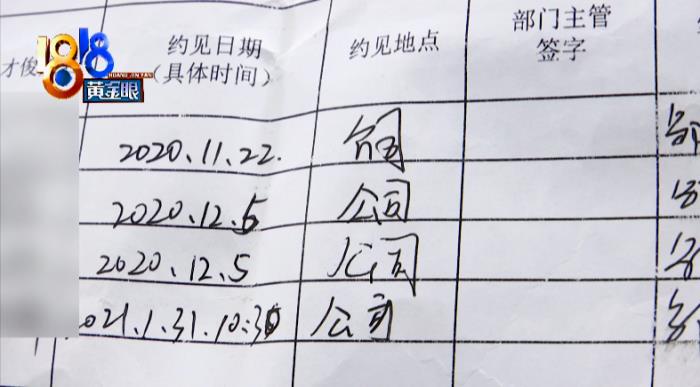 1818
HUANG JIN YAN
黄金眼
才俊
约见日期
(具体时间)
约见地点
部门主管
签字
2020.11.22. 公司
2020.12.6 公司
2020.12.5 公司
2021.1.31.10:30 公司